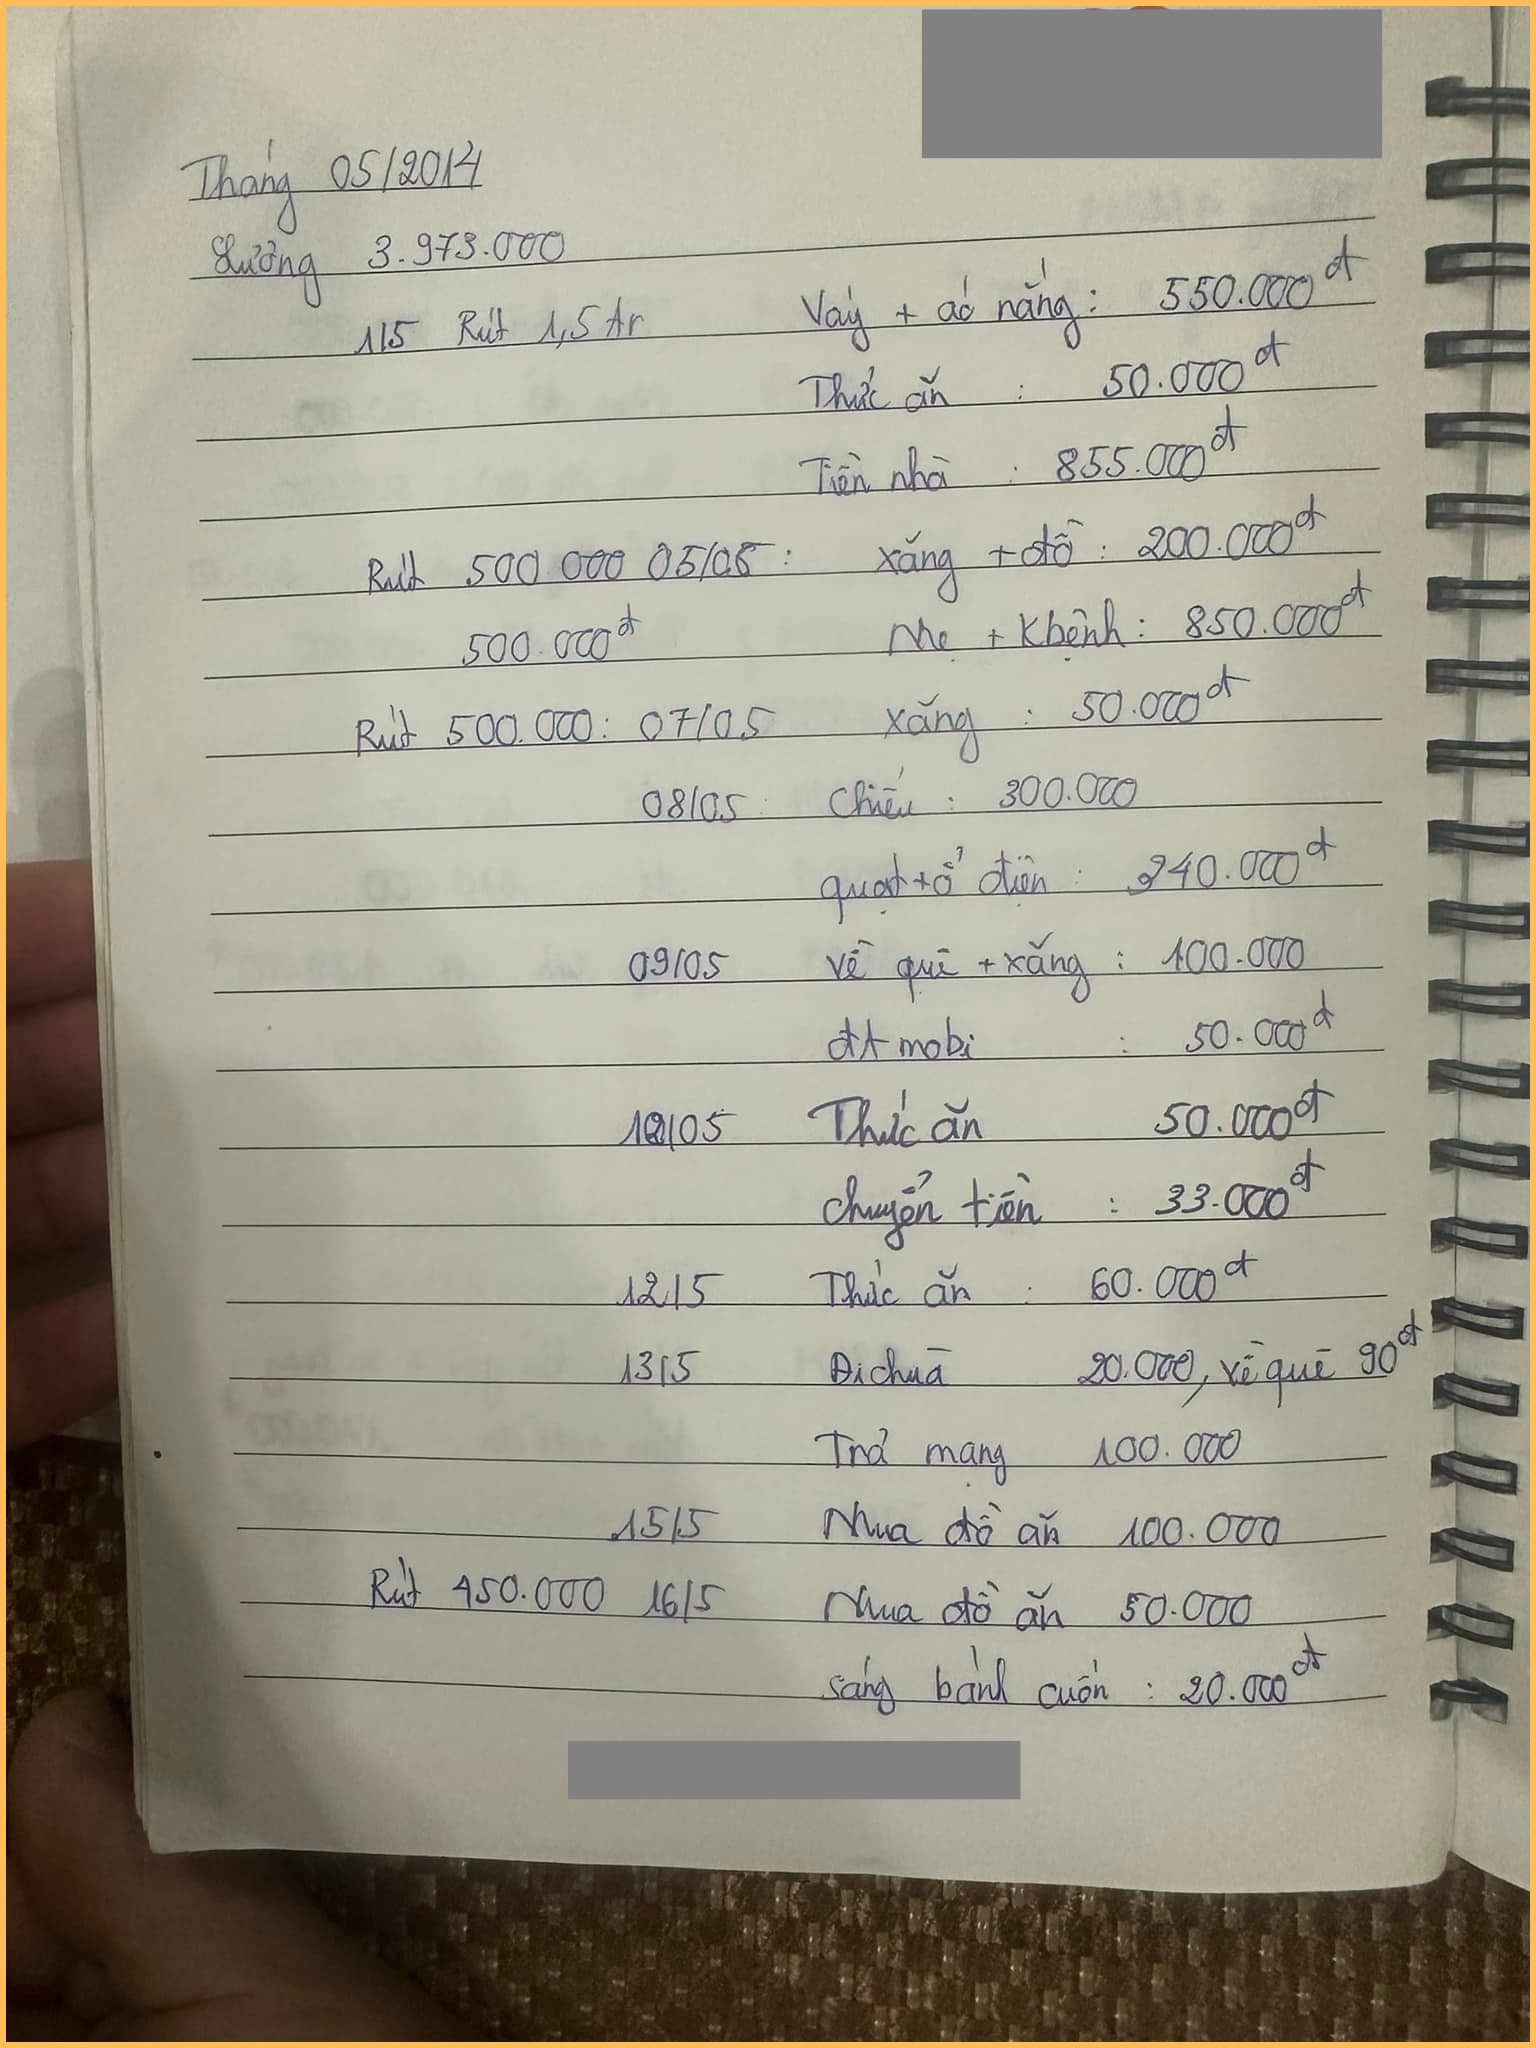 Tháng 05/2014
Lương 3.973.000
1/5 Rút 1,5 tr Váy + áo nắng: 550.000đ
Thức ăn : 50.000đ
Tiền nhà : 855.000đ
Rút 500 000 05/05: xăng + đồ : 200.000đ
500.000đ Mẹ + Kbệnh: 850.000đ
Rút 500.000: 07/05 xăng : 50.000đ
08/05: Chiếu : 300.000
quạt + ổ điện : 240.000đ
09/05 về quê + xăng : 100.000
đt mobi : 50.000đ
/05 Thức ăn 50.000đ
chuyển tiền : 33.000đ
12/5 Thức ăn : 60.000đ
13/5 Đi chùa 20.000, về quê 90đ
Trả mạng 100.000
15/5 Mua đồ ăn 100.000
Rút 450.000 16/5 Mua đồ ăn 50.000
sáng bánh cuốn : 20.000đ